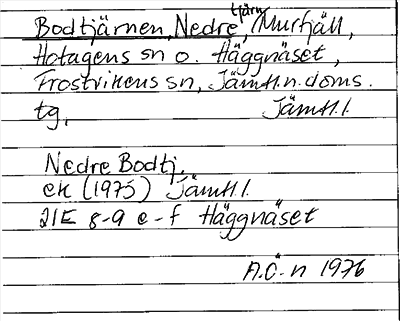 Bodtjärnen, Nedre, tjärn/Murfjäll,
Hotagens sn o. Häggnäset,
Frostvikens sn, Jämtl.n.doms.
tg, Jämtl.l.
Nedre Bodtj.
ek (1975) Jämtl l.
21E 8-9 e-f Häggnäset
A.Ö-n 1976